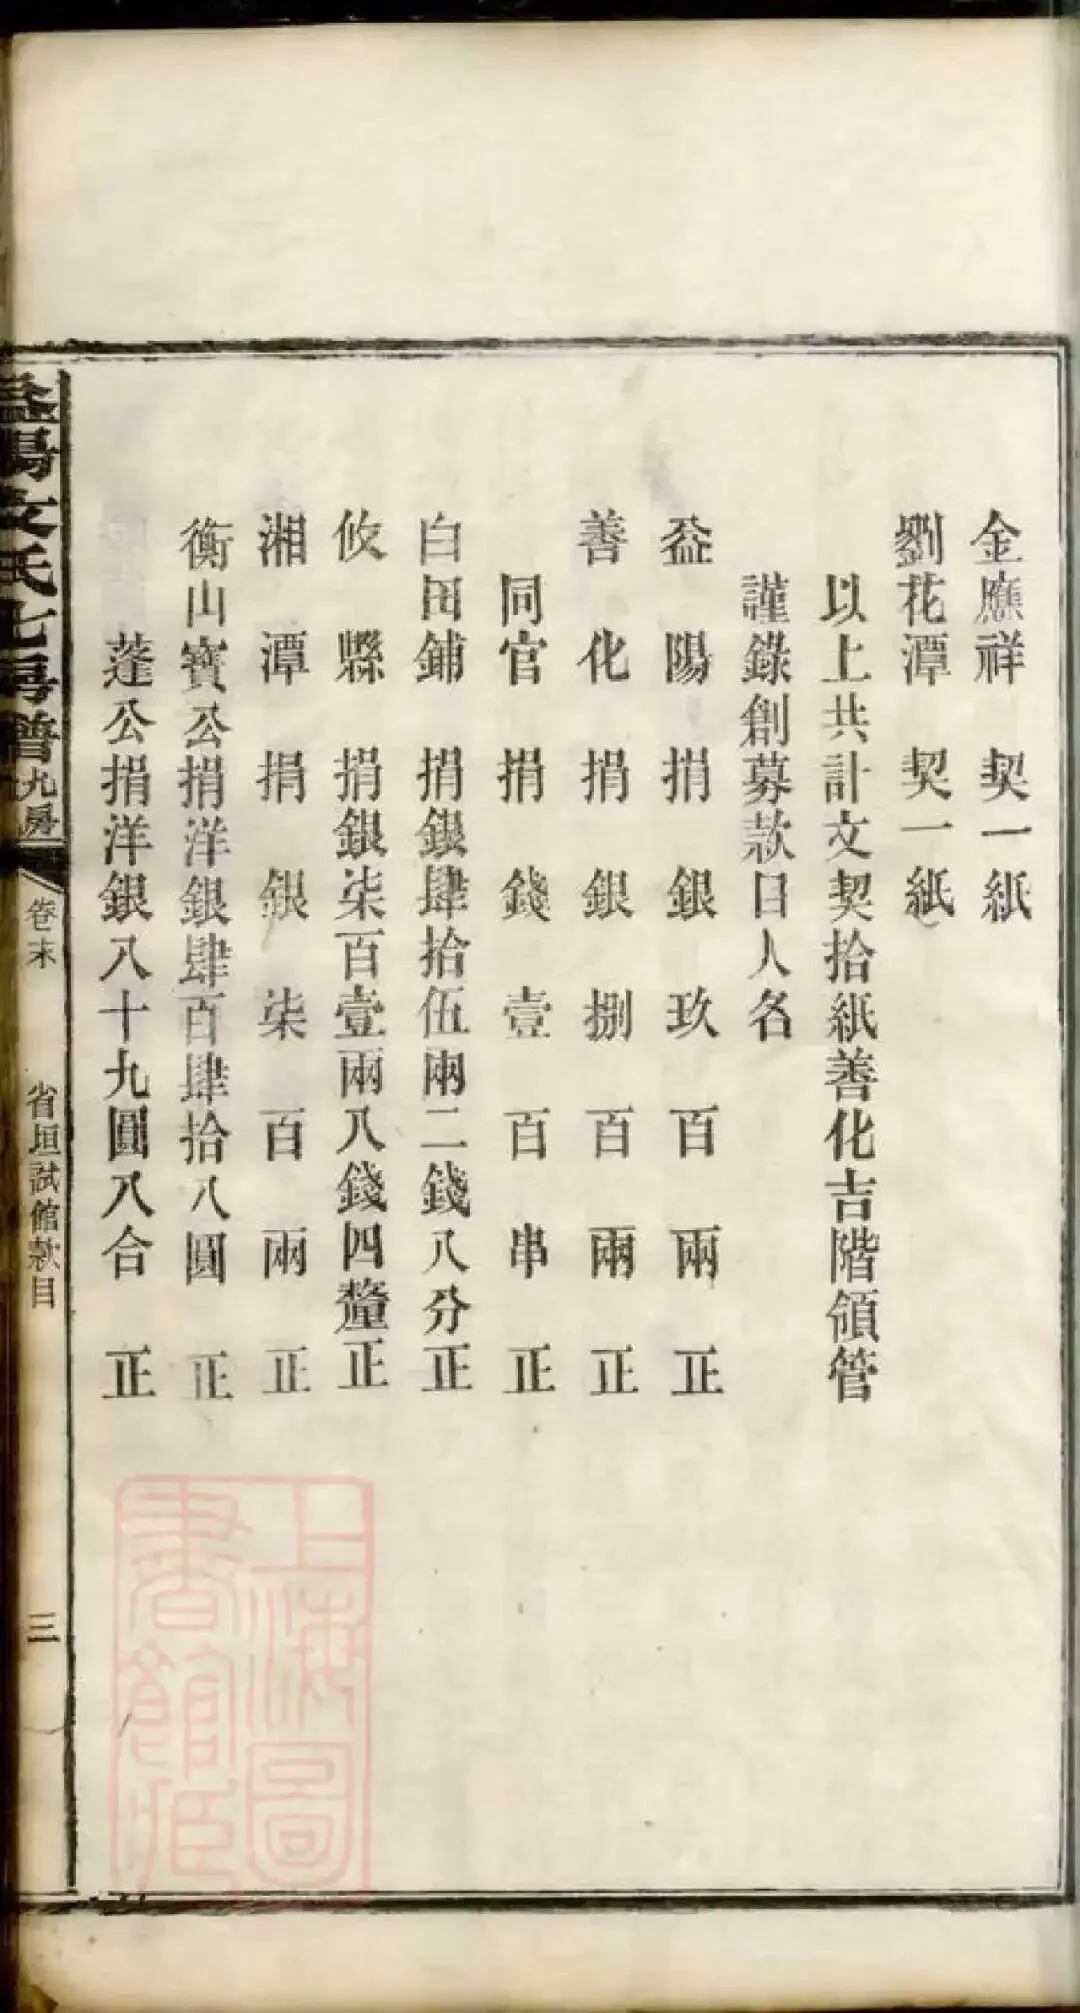 金應祥　契一紙
劉花潭　契一紙
以上共計文契拾紙善化吉階領管
謹錄創募款目人名
益陽捐銀玖百兩正
善化捐銀捌百兩正
同官捐錢壹百串正
白田鋪捐銀肆拾伍兩二錢八分正
攸縣捐銀柒百壹兩八錢四釐正
湘潭捐銀柒百兩正
衡山寶公捐洋銀肆百肆拾八圓正
蓬公捐洋銀八十九圓八合正
益陽文氏七房譜九房
卷末
省垣試館款目
三
上海圖
書館臧